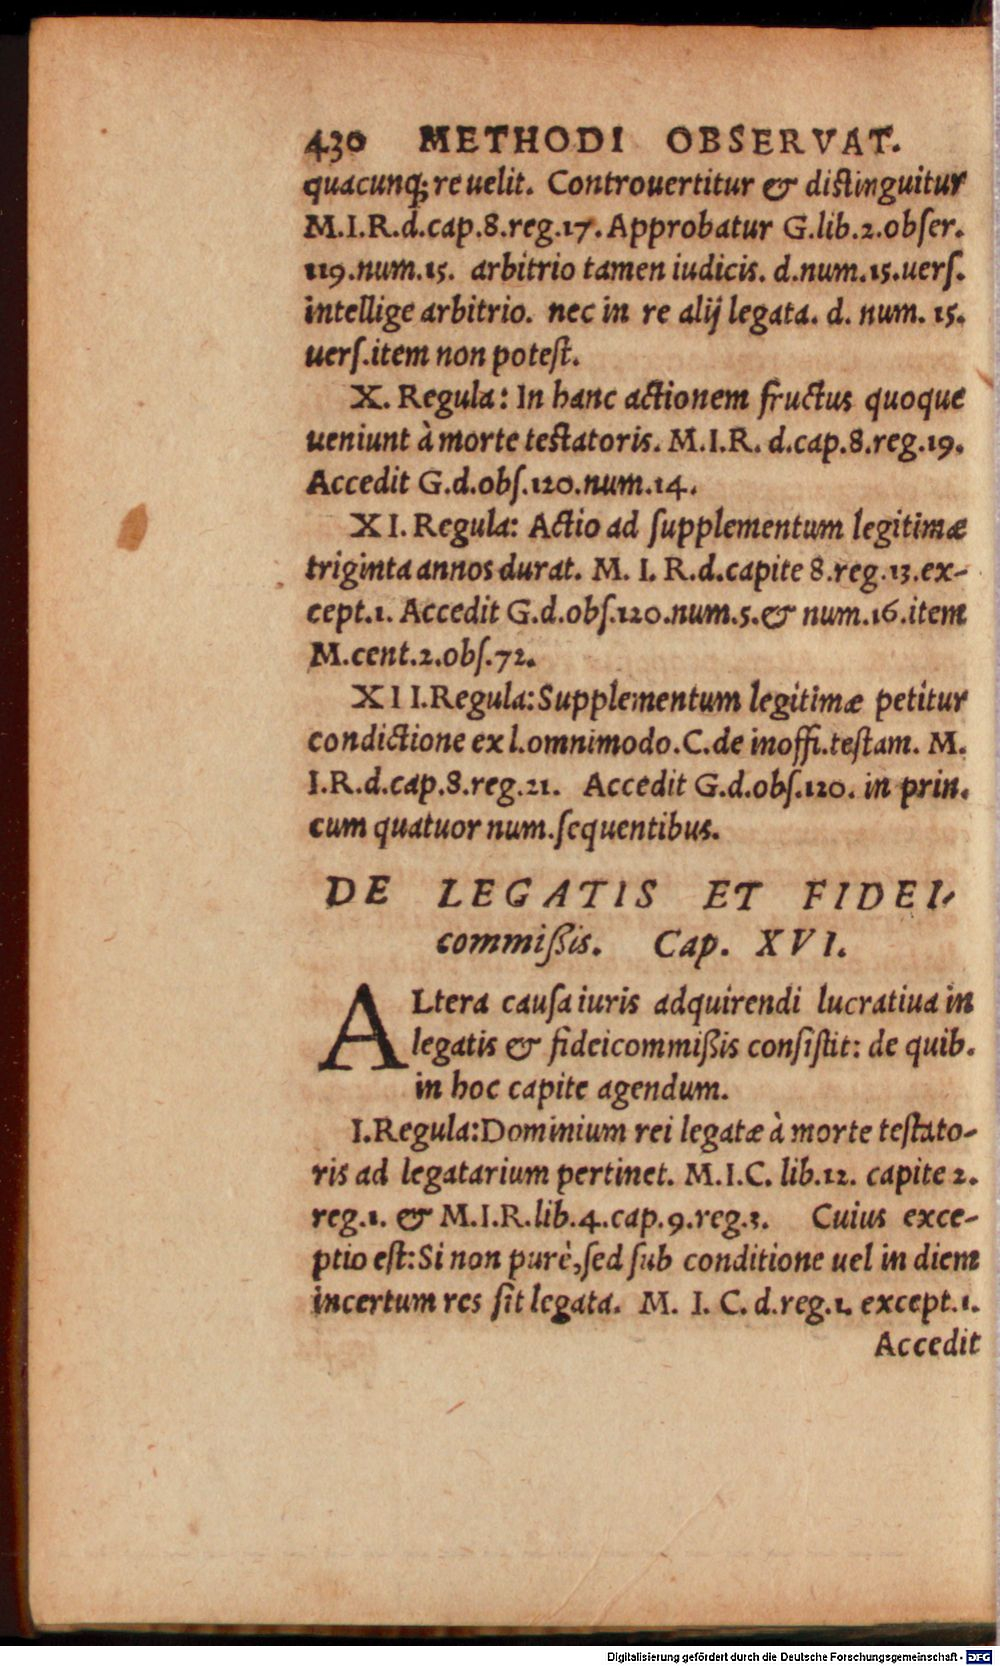 430 METHODI OBSERVAT.
quacunq; re uelit. Controuertitur & distinguitur
M.I.R.d.cap.8.reg.17. Approbatur G.lib.2.obſer.
119.num.15. arbitrio tamen iudicis. d.num.15.uerſ.
intellige arbitrio. nec in re alij legata. d. num. 15.
uerſ.item non poteſt.
X. Regula: In hanc actionem fructus quoque
ueniunt à morte teſtatoris. M.I.R. d.cap.8.reg.19.
Accedit G.d.obſ.120.num.14.
XI. Regula: Actio ad ſupplementum legitimæ
triginta annos durat. M. I. R.d.capite 8.reg.13.ex-
cept.1. Accedit G.d.obſ.120.num.5.& num.16.item
M.cent.2.obſ.72.
XII.Regula:Supplementum legitimæ petitur
condictione ex l.omnimodo.C.de inoffi.teſtam. M.
I.R.d.cap.8.reg.21. Accedit G.d.obſ.120. in prin.
cum quatuor num.ſequentibus.
DE LEGATIS ET FIDEI-
commißis. Cap. XVI.
ALtera cauſa iuris adquirendi lucratiua in
legatis & fideicommißis conſiſtit: de quib.
in hoc capite agendum.
I.Regula:Dominium rei legatæ à morte teſtato-
ris ad legatarium pertinet. M.I.C. lib.12. capite 2.
reg.1. & M.I.R.lib.4.cap.9.reg.3. Cuius exce-
ptio eſt:Si non purè,ſed ſub conditione uel in diem
incertum res ſit legata. M. I. C. d.reg.1. except.1.
Accedit
Digitalisierung gefördert durch die Deutsche Forschungsgemeinschaft - DFG